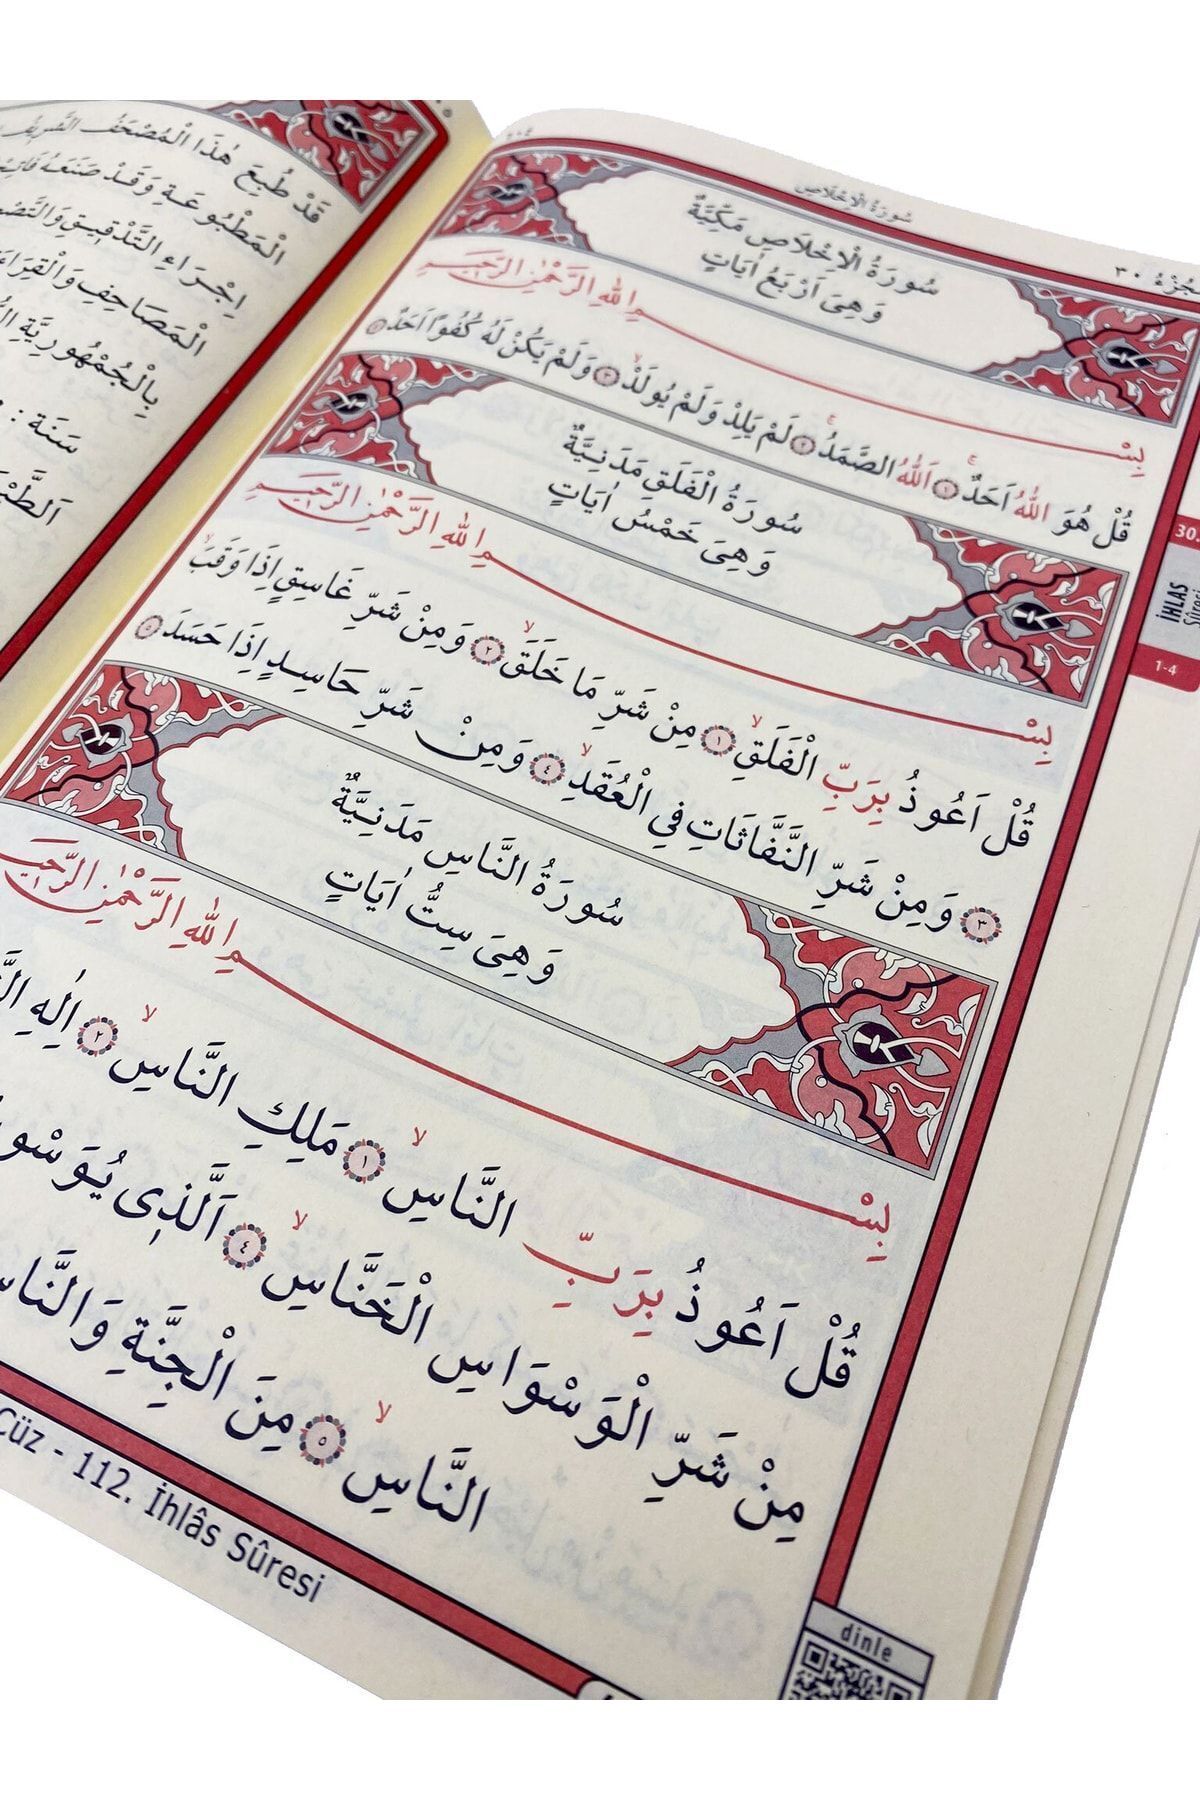 سُورَةُ الْاِخْلَاصِ
٦٠٤
اَلْجُزْءُ ٣٠
سُورَةُ الْاِخْلَاصِ مَكِّيَّةٌ
وَهِىَ اَرْبَعُ اٰيَاتٍ
بِسْمِ اللّٰهِ الرَّحْمٰنِ الرَّحِيمِ
قُلْ هُوَ اللّٰهُ اَحَدٌۚ ١ اَللّٰهُ الصَّمَدُۚ ٢ لَمْ يَلِدْ وَلَمْ يُولَدْۙ ٣ وَلَمْ يَكُنْ لَهُ كُفُوًا اَحَدٌ ٤
سُورَةُ الْفَلَقِ مَدَنِيَّةٌ
وَهِىَ خَمْسُ اٰيَاتٍ
بِسْمِ اللّٰهِ الرَّحْمٰنِ الرَّحِيمِ
قُلْ اَعُوذُ بِرَبِّ الْفَلَقِۙ ١ مِنْ شَرِّ مَا خَلَقَۙ ٢ وَمِنْ شَرِّ غَاسِقٍ اِذَا وَقَبَۙ
٣ وَمِنْ شَرِّ النَّفَّاثَاتِ فِي الْعُقَدِۙ ٤ وَمِنْ شَرِّ حَاسِدٍ اِذَا حَسَدَ ٥
سُورَةُ النَّاسِ مَدَنِيَّةٌ
وَهِىَ سِتُّ اٰيَاتٍ
بِسْمِ اللّٰهِ الرَّحْمٰنِ الرَّحِيمِ
قُلْ اَعُوذُ بِرَبِّ النَّاسِۙ ١ مَلِكِ النَّاسِۙ ٢ اِلٰهِ
مِنْ شَرِّ الْوَسْوَاسِ الْخَنَّاسِۙ ٤ اَلَّذِى
النَّاسِۙ ٥ مِنَ الْجِنَّةِ
Cüz - 112. İhlâs Sûresi
dinle
30.
İHLAS
Sûresi
1-4
قَدْ طُبِعَ هٰذَا الْمُصْحَفُ الشَّرِيفُ
الْمَطْبُوعَةِ وَقَدْ صَنَعَهُ
اِجْرَاءِ التَّدْقِيقِ
الْمَصَاحِفِ
بِالْجُمْهُورِيَّةِ
سَنَة :